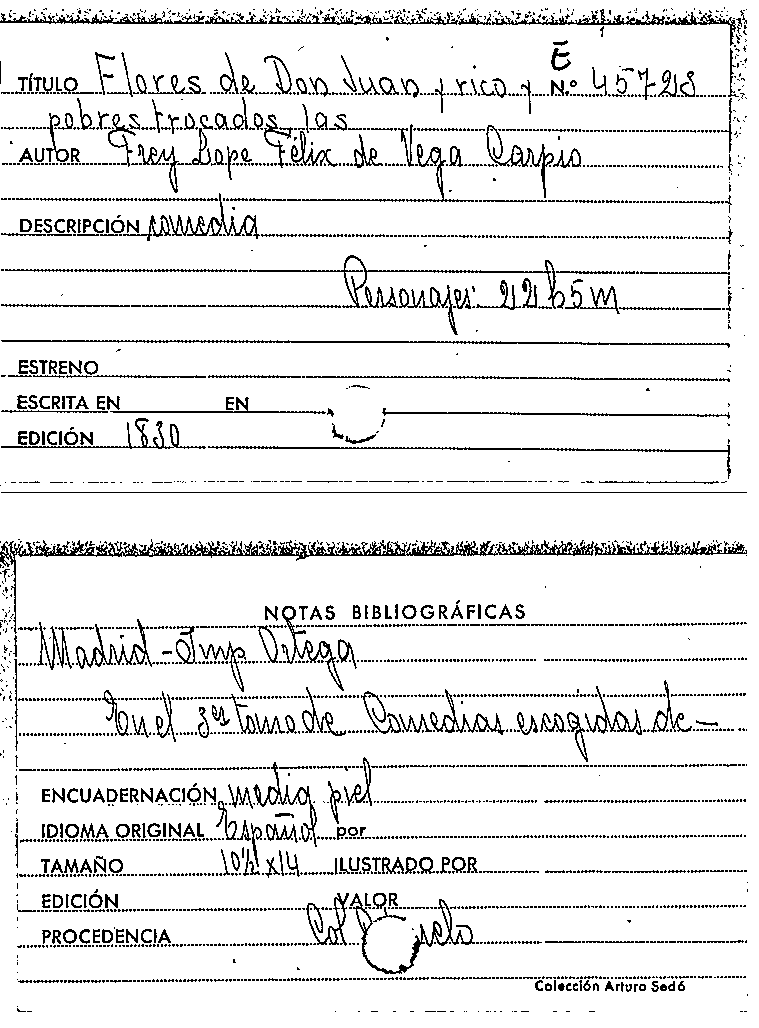 Ē
TÍTULO Flores de Don Juan y rico y N.º 45728
pobres trocados, las
AUTOR Frey Lope Félix de Vega Carpio
DESCRIPCIÓN comedia
Personajes: 22 h 5 m
ESTRENO
ESCRITA EN EN
EDICIÓN 1830
NOTAS BIBLIOGRÁFICAS
Madrid - Imp Ortega
En el 3er tomo de Comedias escogidas de —
ENCUADERNACIÓN media piel
IDIOMA ORIGINAL Español por
TAMAÑO 10½ x 14 ILUSTRADO POR
EDICIÓN VALOR
PROCEDENCIA Col
Colección Arturo Sedó